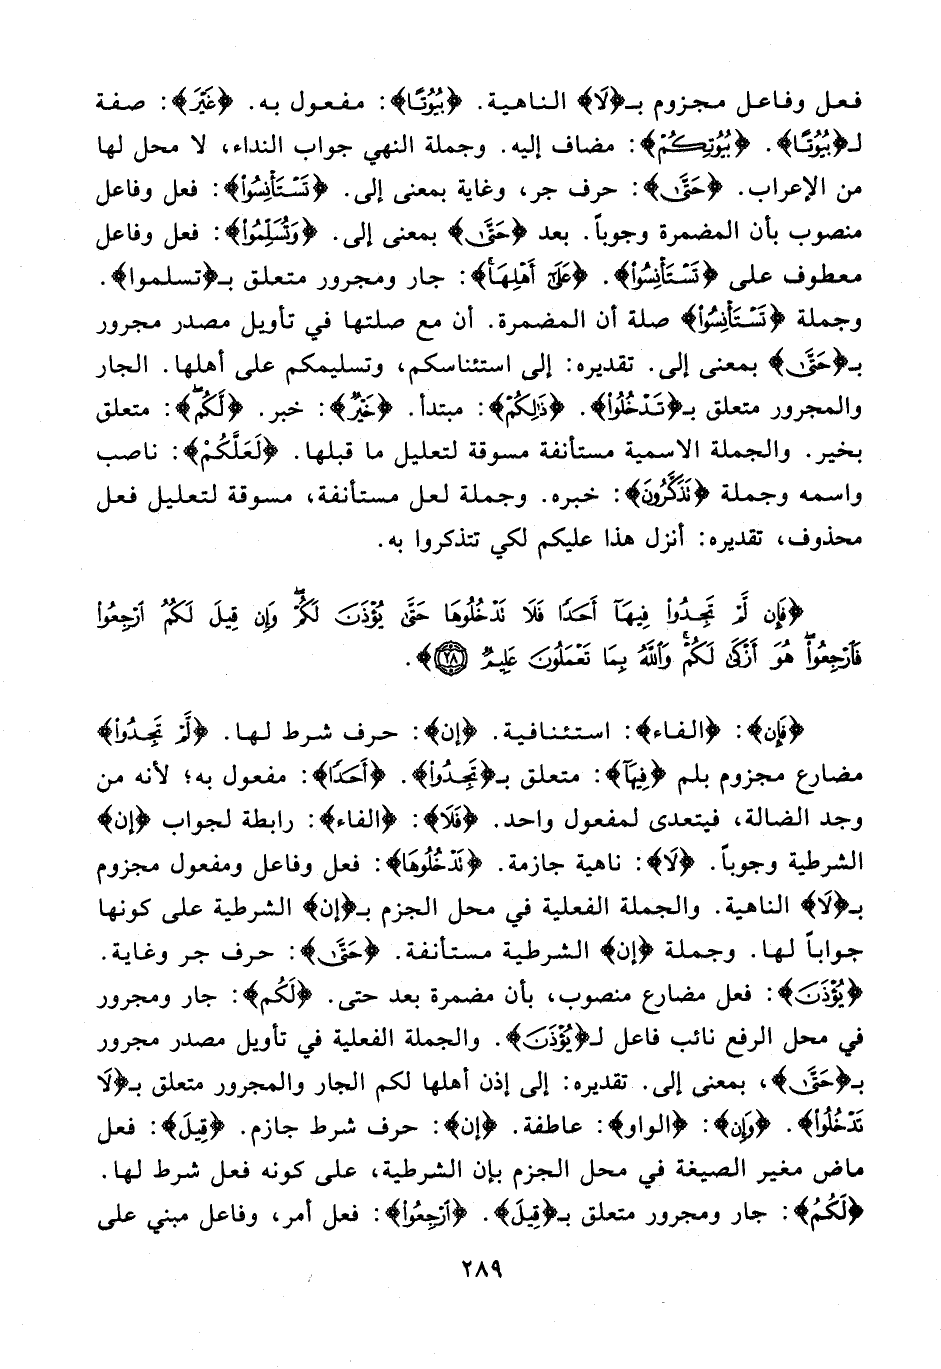 فعل وفاعل مجزوم بـ﴿لَا﴾ الناهية. ﴿بُيُوتًا﴾: مفعول به. ﴿غَيْرَ﴾: صفة
لـ﴿بُيُوتًا﴾. ﴿بُيُوتِكُمْ﴾: مضاف إليه. وجملة النهي جواب النداء، لا محل لها
من الإعراب. ﴿حَتَّى﴾: حرف جر، وغاية بمعنى إلى. ﴿تَسْتَأْنِسُوا﴾: فعل وفاعل
منصوب بأن المضمرة وجوباً. بعد ﴿حَتَّى﴾ بمعنى إلى. ﴿وَتُسَلِّمُوا﴾: فعل وفاعل
معطوف على ﴿تَسْتَأْنِسُوا﴾. ﴿عَلَى أَهْلِهَا﴾: جار ومجرور متعلق بـ﴿تسلموا﴾.
وجملة ﴿تَسْتَأْنِسُوا﴾ صلة أن المضمرة. أن مع صلتها في تأويل مصدر مجرور
بـ﴿حَتَّى﴾ بمعنى إلى. تقديره: إلى استئناسكم، وتسليمكم على أهلها. الجار
والمجرور متعلق بـ﴿تَدْخُلُوا﴾. ﴿ذَلِكُمْ﴾: مبتدأ. ﴿خَيْرٌ﴾: خبر. ﴿لَكُمْ﴾: متعلق
بخير. والجملة الاسمية مستأنفة مسوقة لتعليل ما قبلها. ﴿لَعَلَّكُمْ﴾: ناصب
واسمه وجملة ﴿تَذَكَّرُونَ﴾: خبره. وجملة لعل مستأنفة، مسوقة لتعليل فعل
محذوف، تقديره: أنزل هذا عليكم لكي تتذكروا به.
﴿فَإِن لَّمْ تَجِدُوا فِيهَا أَحَدًا فَلَا تَدْخُلُوهَا حَتَّى يُؤْذَنَ لَكُمْ وَإِن قِيلَ لَكُمُ ارْجِعُوا
فَارْجِعُوا هُوَ أَزْكَى لَكُمْ وَاللَّهُ بِمَا تَعْمَلُونَ عَلِيمٌ ٢٨﴾.
﴿فَإِن﴾: ﴿الفاء﴾: استئنافية. ﴿إن﴾: حرف شرط لها. ﴿لَّمْ تَجِدُوا﴾
مضارع مجزوم بلم ﴿فِيهَا﴾: متعلق بـ﴿تَجِدُوا﴾. ﴿أَحَدًا﴾: مفعول به؛ لأنه من
وجد الضالة، فيتعدى لمفعول واحد. ﴿فَلَا﴾: ﴿الفاء﴾: رابطة لجواب ﴿إن﴾
الشرطية وجوباً. ﴿لَا﴾: ناهية جازمة. ﴿تَدْخُلُوهَا﴾: فعل وفاعل ومفعول مجزوم
بـ﴿لَا﴾ الناهية. والجملة الفعلية في محل الجزم بـ﴿إن﴾ الشرطية على كونها
جواباً لها. وجملة ﴿إن﴾ الشرطية مستأنفة. ﴿حَتَّى﴾: حرف جر وغاية.
﴿يُؤْذَنَ﴾: فعل مضارع منصوب، بأن مضمرة بعد حتى. ﴿لَكُم﴾: جار ومجرور
في محل الرفع نائب فاعل لـ﴿يُؤْذَنَ﴾. والجملة الفعلية في تأويل مصدر مجرور
بـ﴿حَتَّى﴾، بمعنى إلى. تقديره: إلى إذن أهلها لكم الجار والمجرور متعلق بـ﴿لَا
تَدْخُلُوا﴾. ﴿وَإِن﴾: ﴿الواو﴾: عاطفة. ﴿إن﴾: حرف شرط جازم. ﴿قِيلَ﴾: فعل
ماض مغير الصيغة في محل الجزم بإن الشرطية، على كونه فعل شرط لها.
﴿لَكُمُ﴾: جار ومجرور متعلق بـ﴿قِيلَ﴾. ﴿ارْجِعُوا﴾: فعل أمر، وفاعل مبني على
٢٨٩